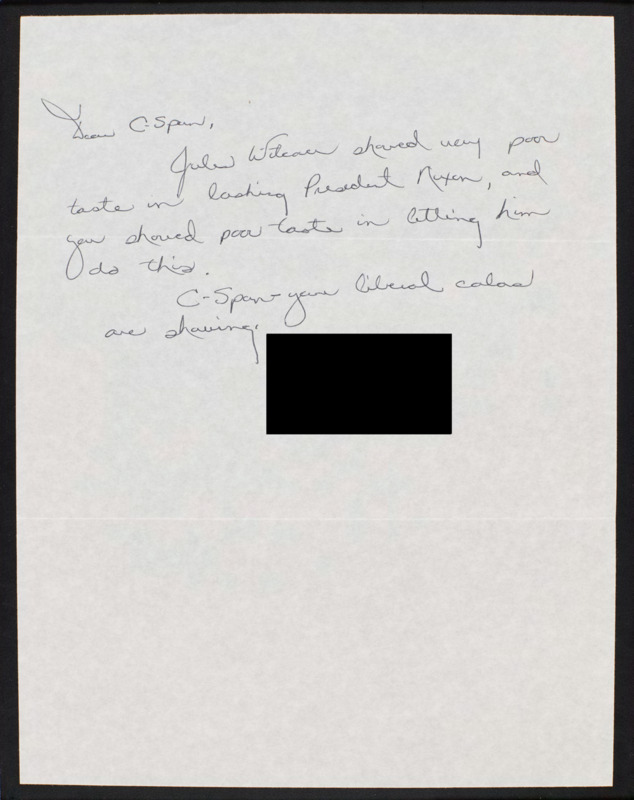 Dear C-Span,
Jules Witcover showed very poor
taste in bashing President Nixon, and
you showed poor taste in letting him
do this.
C-Span-your liberal colors
are showing.